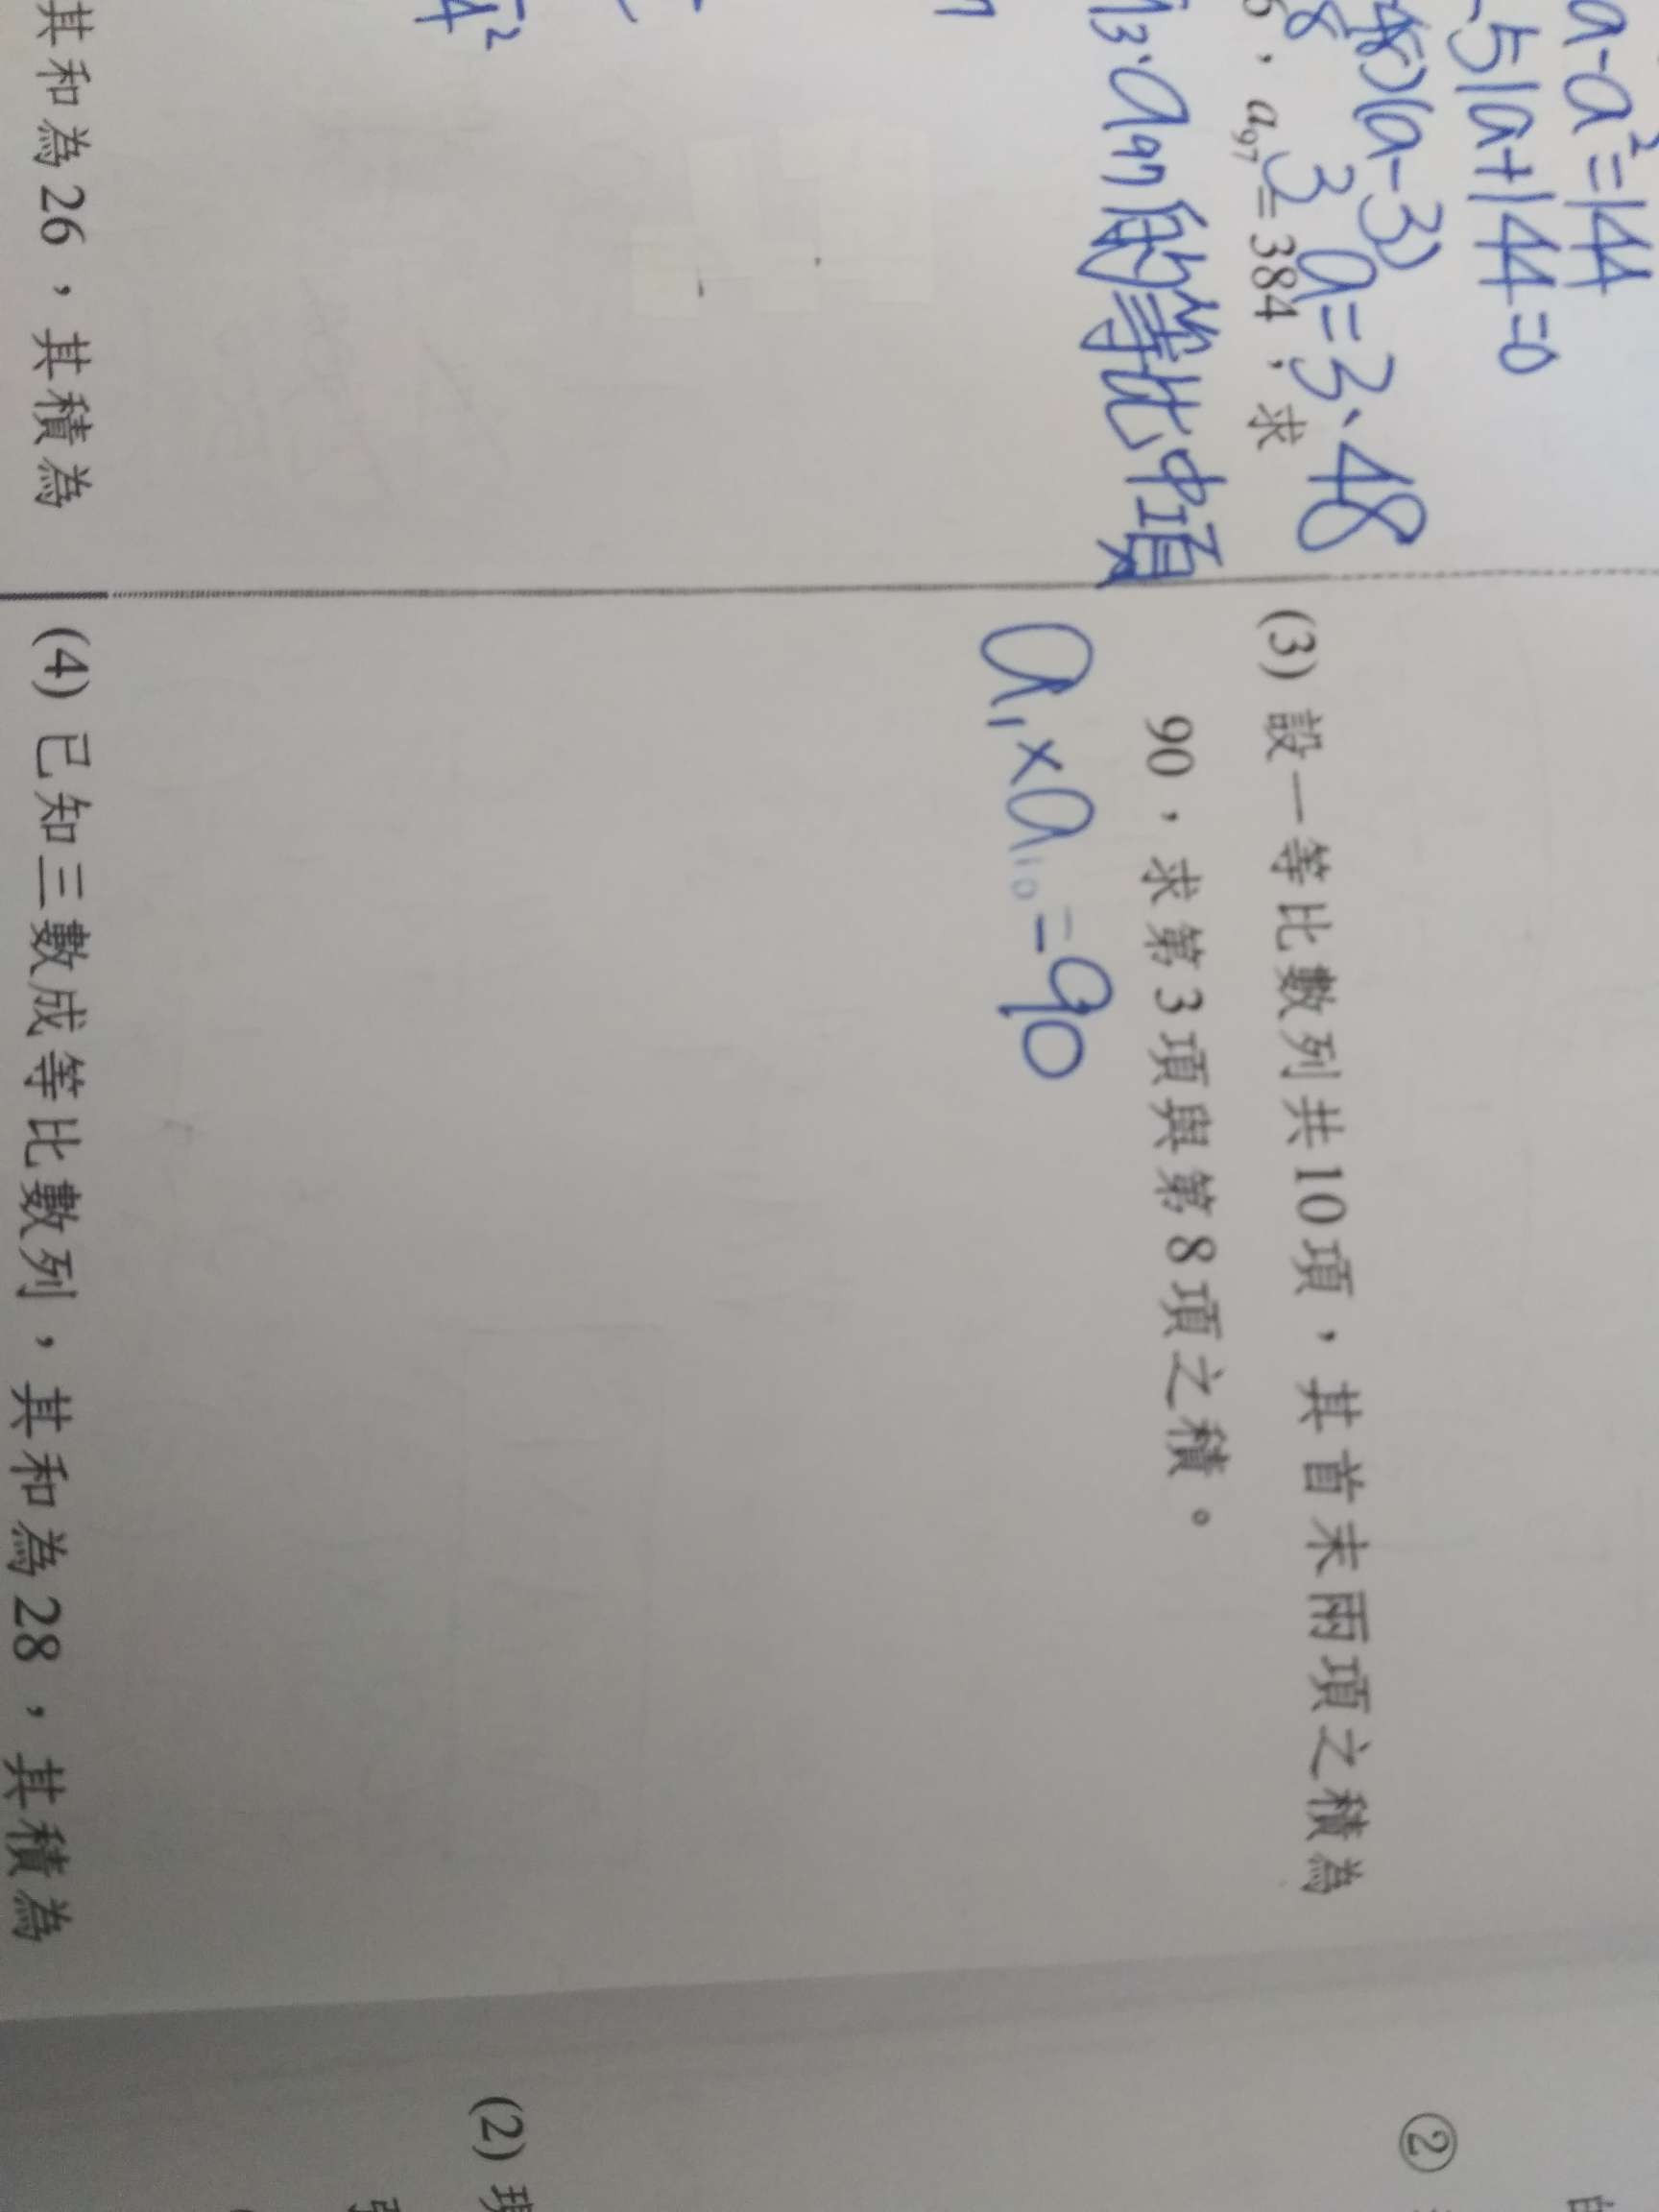 a-a²=144
51a+144=0
(a-3)
3 a=3、48
，a₉₇=384，求
a₉₇的等比中項
(3) 設一等比數列共10項，其首末兩項之積為
90，求第3項與第8項之積。
a₁×a₁₀=90
其和為26，其積為
(4) 已知三數成等比數列，其和為28，其積為
②
(2)